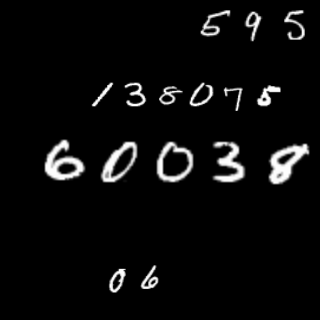 595
138075
60038
06